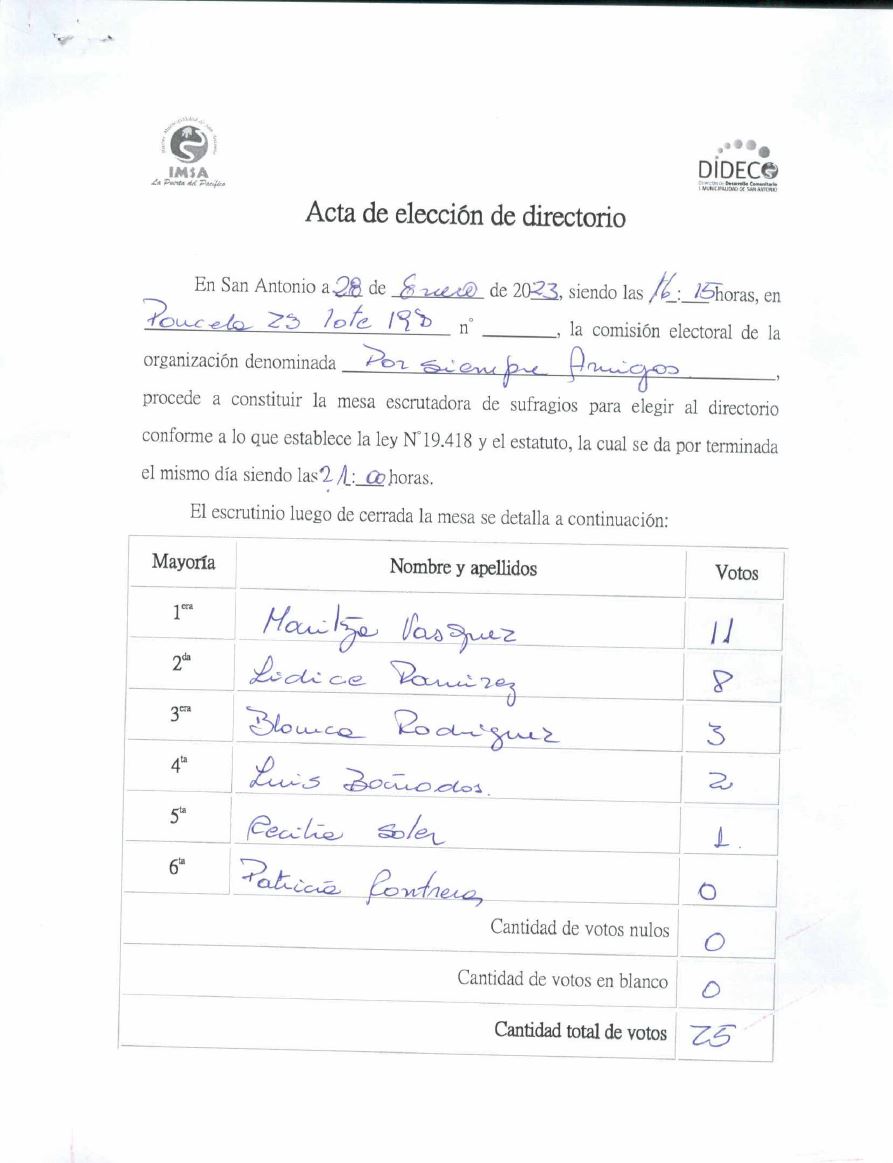 IMSA
La Puerta del Pacífico
DIDECO
Dirección de Desarrollo Comunitario
I. MUNICIPALIDAD DE SAN ANTONIO
Acta de elección de directorio
En San Antonio a 28 de Enero de 2023, siendo las 16: 15 horas, en
Parcela 23 lote 19D n° ________, la comisión electoral de la
organización denominada Por siempre Amigos,
procede a constituir la mesa escrutadora de sufragios para elegir al directorio
conforme a lo que establece la ley N°19.418 y el estatuto, la cual se da por terminada
el mismo día siendo las 21: 00 horas.
El escrutinio luego de cerrada la mesa se detalla a continuación:
Mayoría Nombre y apellidos Votos
1era Maritza Vasquez 11
2da Lidice Ramirez 8
3era Blanca Rodriguez 3
4ta Luis Bañados. 2
5ta Cecilia Soler 1.
6ta Patricia Contreras 0
Cantidad de votos nulos 0
Cantidad de votos en blanco 0
Cantidad total de votos 25